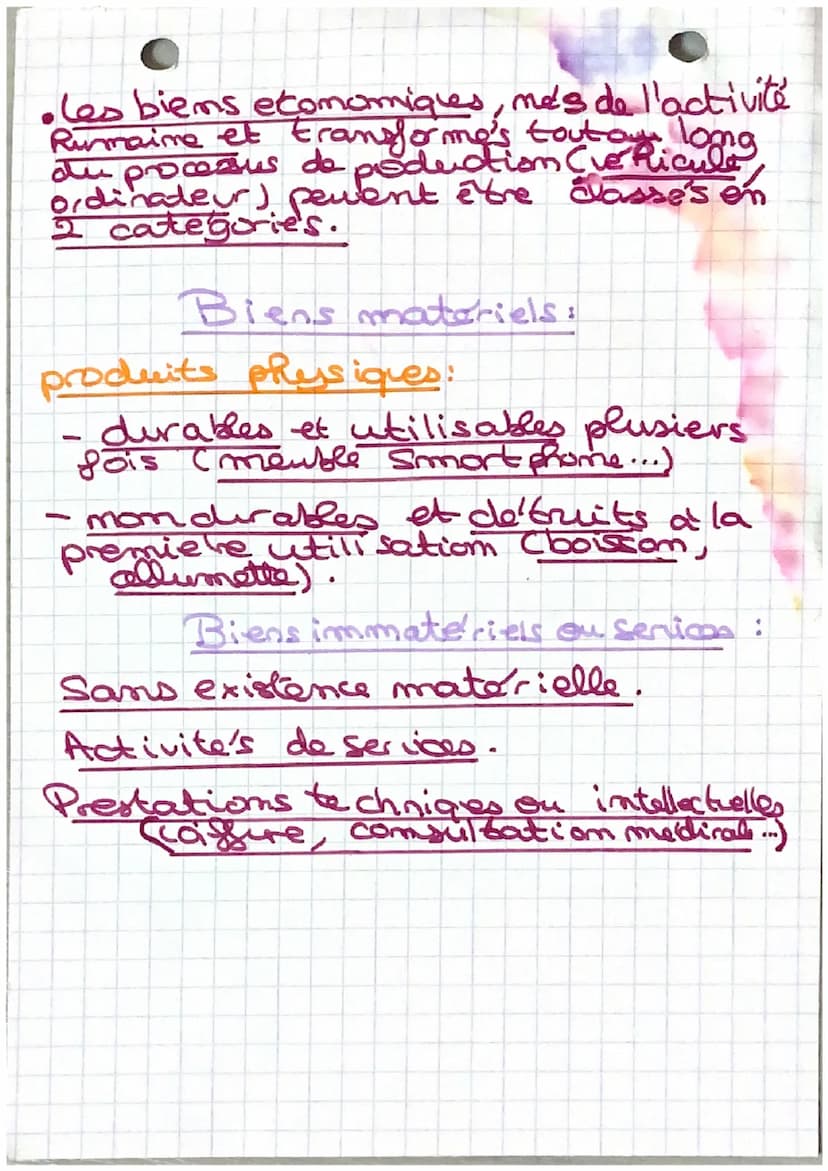 . Les biens economiques, nés de l'activité
humaine et transformés tout au long
du processus de production (véhicule,
ordinateur) peuvent être classés en
2 catégories.
Biens matériels :
produits physiques :
- durables et utilisables plusiers
fois (meuble smartphone...)
- non durables et détruits à la
premiere utilisation (boisson,
allumette).
Biens immatériels ou services :
Sans existence matérielle.
Activités de services.
Prestations techniques ou intellectuelles
(coiffure, consultation médicale...)